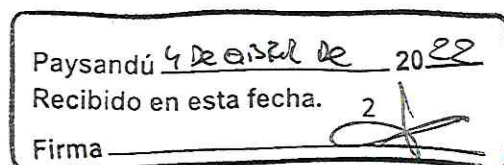 Paysandú 4 De abril de 2022
Recibido en esta fecha.
2
Firma